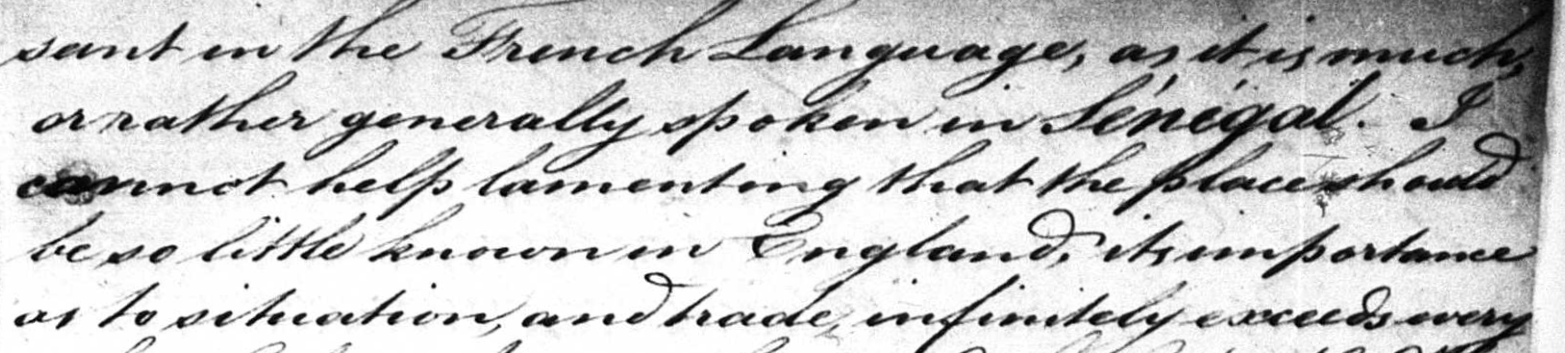 sant in the French Language, as it is much,
or rather generally spoken in Sénégal. I
cannot help lamenting that the place should
be so little known in England, its importance
as to situation, and trade, infinitely exceeds every